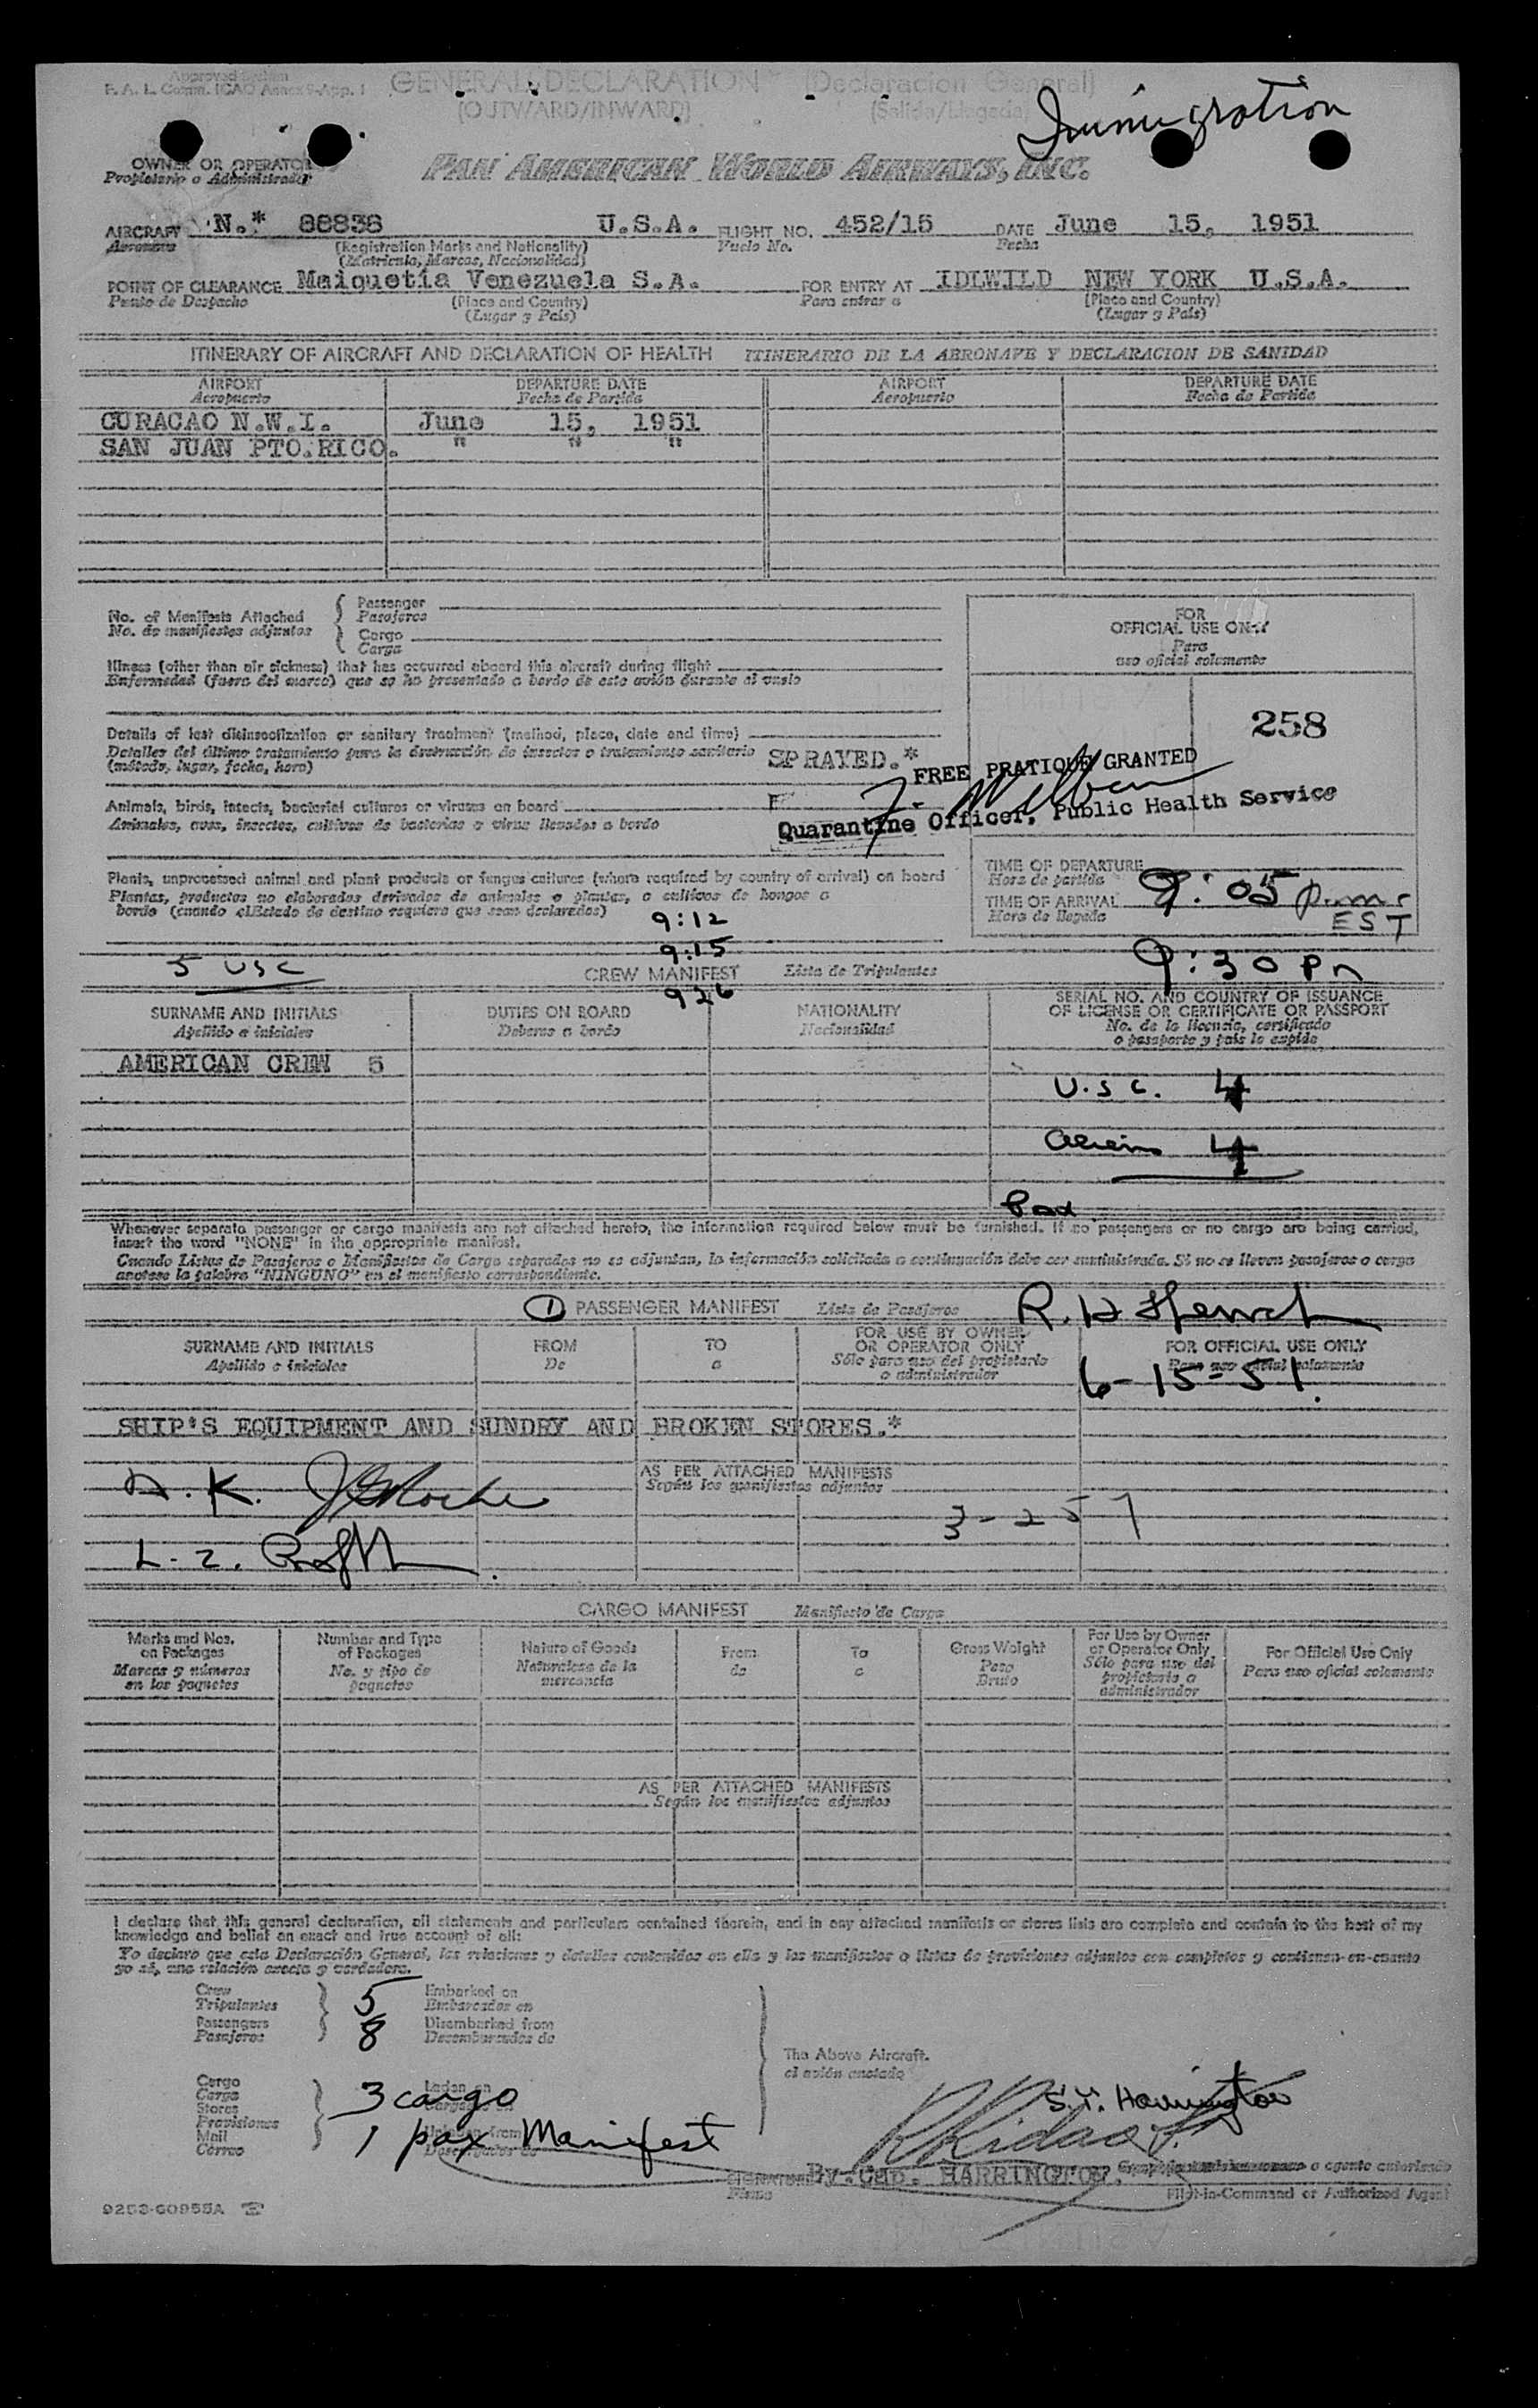 Approved
F. A. L. Comm. ICAO Annex 9-App. 1
GENERAL DECLARATION (Declaracion General)
(OUTWARD/INWARD) (Salida/Llegada)
Immigration
OWNER OR OPERATOR
Propietario o Administrador
PAN AMERICAN WORLD AIRWAYS, INC.
AIRCRAFT N.* 88838 U.S.A. FLIGHT NO. 452/15 DATE June 15, 1951
Aeronave (Registration Marks and Nationality) Vuelo No. Fecha
(Matricula, Marcas, Nacionalidad)
POINT OF CLEARANCE Maiquetia Venezuela S.A. FOR ENTRY AT IDLWILD NEW YORK U.S.A.
Punto de Despacho (Place and Country) Para entrar a (Place and Country)
(Lugar y País) (Lugar y País)
ITINERARY OF AIRCRAFT AND DECLARATION OF HEALTH ITINERARIO DE LA AERONAVE Y DECLARACION DE SANIDAD
AIRPORT DEPARTURE DATE AIRPORT DEPARTURE DATE
Aeropuerto Fecha de Partida Aeropuerto Fecha de Partida
CURACAO N.W.I. June 15, 1951
SAN JUAN PTO.RICO. " " "
No. of Manifests Attached
No. de manifiestos adjuntos
Passenger
Pasajeros
Cargo
Carga
FOR
OFFICIAL USE ONLY
Para
uso oficial solamente
Illness (other than air sickness) that has occurred aboard this aircraft during flight
Enfermedad (fuera del mareo) que se ha presentado a bordo de este avión durante el vuelo
258
Details of last disinsectization or sanitary treatment (method, place, date and time)
Detalles del último tratamiento para la destrucción de insectos o tratamiento sanitario
(método, lugar, fecha, hora)
SPRAYED.*
FREE PRATIQUE GRANTED
Animals, birds, insects, bacterial cultures or viruses on board
Animales, aves, insectos, cultivos de bacterias o virus llevados a bordo
Quarantine Officer, Public Health Service
Plants, unprocessed animal and plant products or fungus cultures (where required by country of arrival) on board
Plantas, productos no elaborados derivados de animales o plantas, o cultivos de hongos a
bordo (cuando el Estado de destino requiera que sean declarados)
TIME OF DEPARTURE
Hora de partida
TIME OF ARRIVAL 9:05 p.m.
Hora de llegada EST
9:12
9:15
9:30 pm
5 USC
CREW MANIFEST Lista de Tripulantes
926
SURNAME AND INITIALS DUTIES ON BOARD NATIONALITY SERIAL NO. AND COUNTRY OF ISSUANCE
Apellido e iniciales Deberes a bordo Nacionalidad OF LICENSE OR CERTIFICATE OR PASSPORT
No. de la licencia, certificado
o pasaporte y país lo expide
AMERICAN CREW 5
U.S.C. 4
Aliens 4
Whenever separate passenger or cargo manifests are not attached hereto, the information required below must be furnished. If no passengers or no cargo are being carried,
insert the word "NONE" in the appropriate manifest.
Cuando Listas de Pasajeros o Manifiestos de Carga separados no se adjuntan, la información solicitada a continuación debe ser suministrada. Si no se llevan pasajeros o carga
anótese la palabra "NINGUNO" en el manifiesto correspondiente.
1 PASSENGER MANIFEST Lista de Pasajeros
SURNAME AND INITIALS FROM TO FOR USE BY OWNER FOR OFFICIAL USE ONLY
Apellido e iniciales De a OR OPERATOR ONLY Para uso oficial solamente
Sólo para uso del propietario
o administrador
6-15-51.
SHIP'S EQUIPMENT AND SUNDRY AND BROKEN STORES.*
AS PER ATTACHED MANIFESTS
Según los manifiestos adjuntos
3-257
CARGO MANIFEST Manifiesto de Carga
Marks and Nos. Number and Type Nature of Goods From To Gross Weight For Use by Owner For Official Use Only
on Packages of Packages Naturaleza de la de a Peso or Operator Only Para uso oficial solamente
Marcas y números No. y tipo de mercancía Bruto Sólo para uso del
en los paquetes paquetes propietario o
administrador
AS PER ATTACHED MANIFESTS
Según los manifiestos adjuntos
I declare that this general declaration, all statements and particulars contained therein, and in any attached manifests or stores lists are complete and contain to the best of my
knowledge and belief an exact and true account of all:
Yo declaro que esta Declaración General, las relaciones y detalles contenidos en ella y los manifiestos o listas de provisiones adjuntos son completos y contienen en cuanto
yo sé, una relación exacta y verdadera.
Crew 5 Embarked on
Tripulantes Embarcados en
Passengers 8 Disembarked from
Pasajeros Desembarcados de
The Above Aircraft.
el avión anotado
Cargo
Carga 3 cargo
Stores
Provisiones
Mail 1 pax Manifest
Correo
S.T. Harrington
By. Cap. HARRINGTON.
Firma
Pilot-in-Command or Authorized Agent
9253-60955A